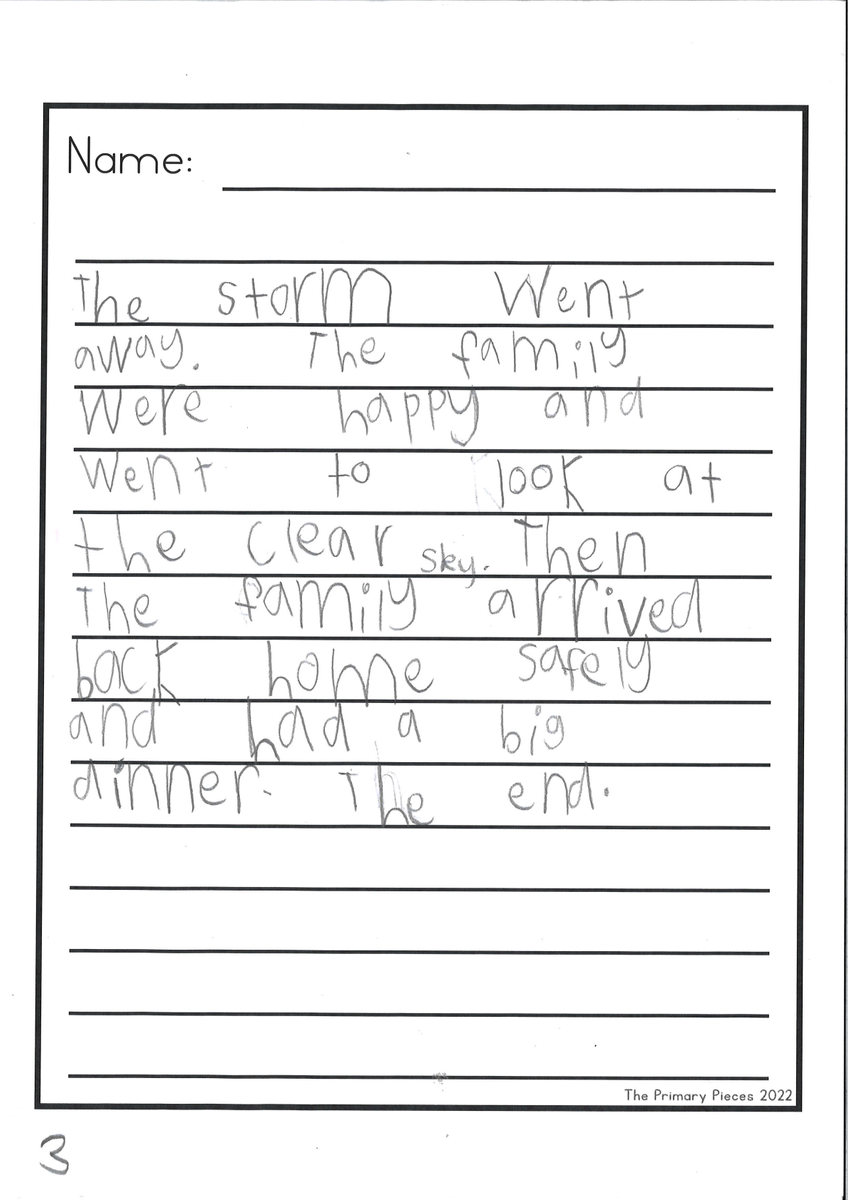 Name:
The storm Went
away. The family
Were happy and
Went to look at
the clear sky. Then
The family arrived
back home safely
and had a big
dinner. The end.
The Primary Pieces 2022
3